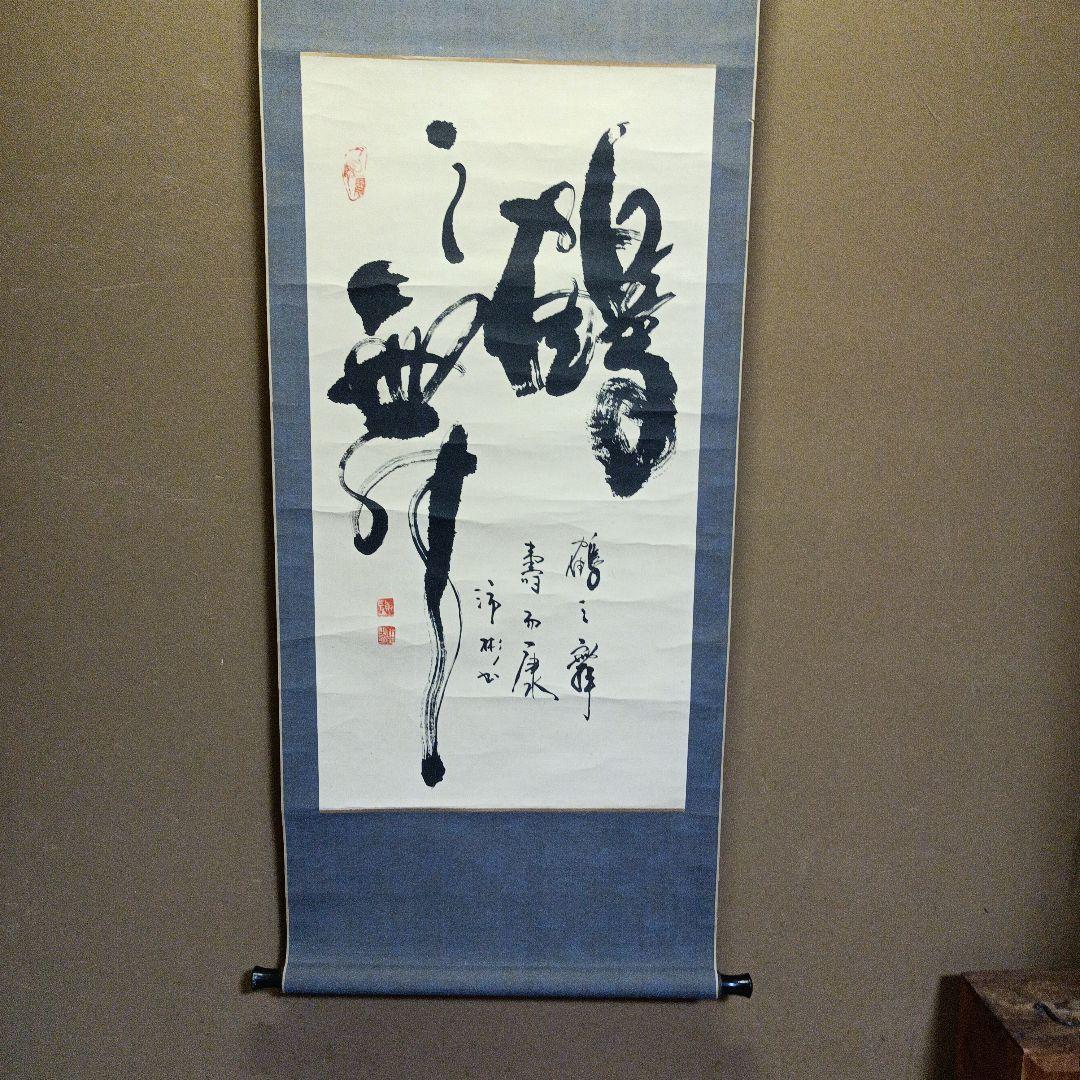 鶴
之舞
鶴之舞
壽而康
沛彬书